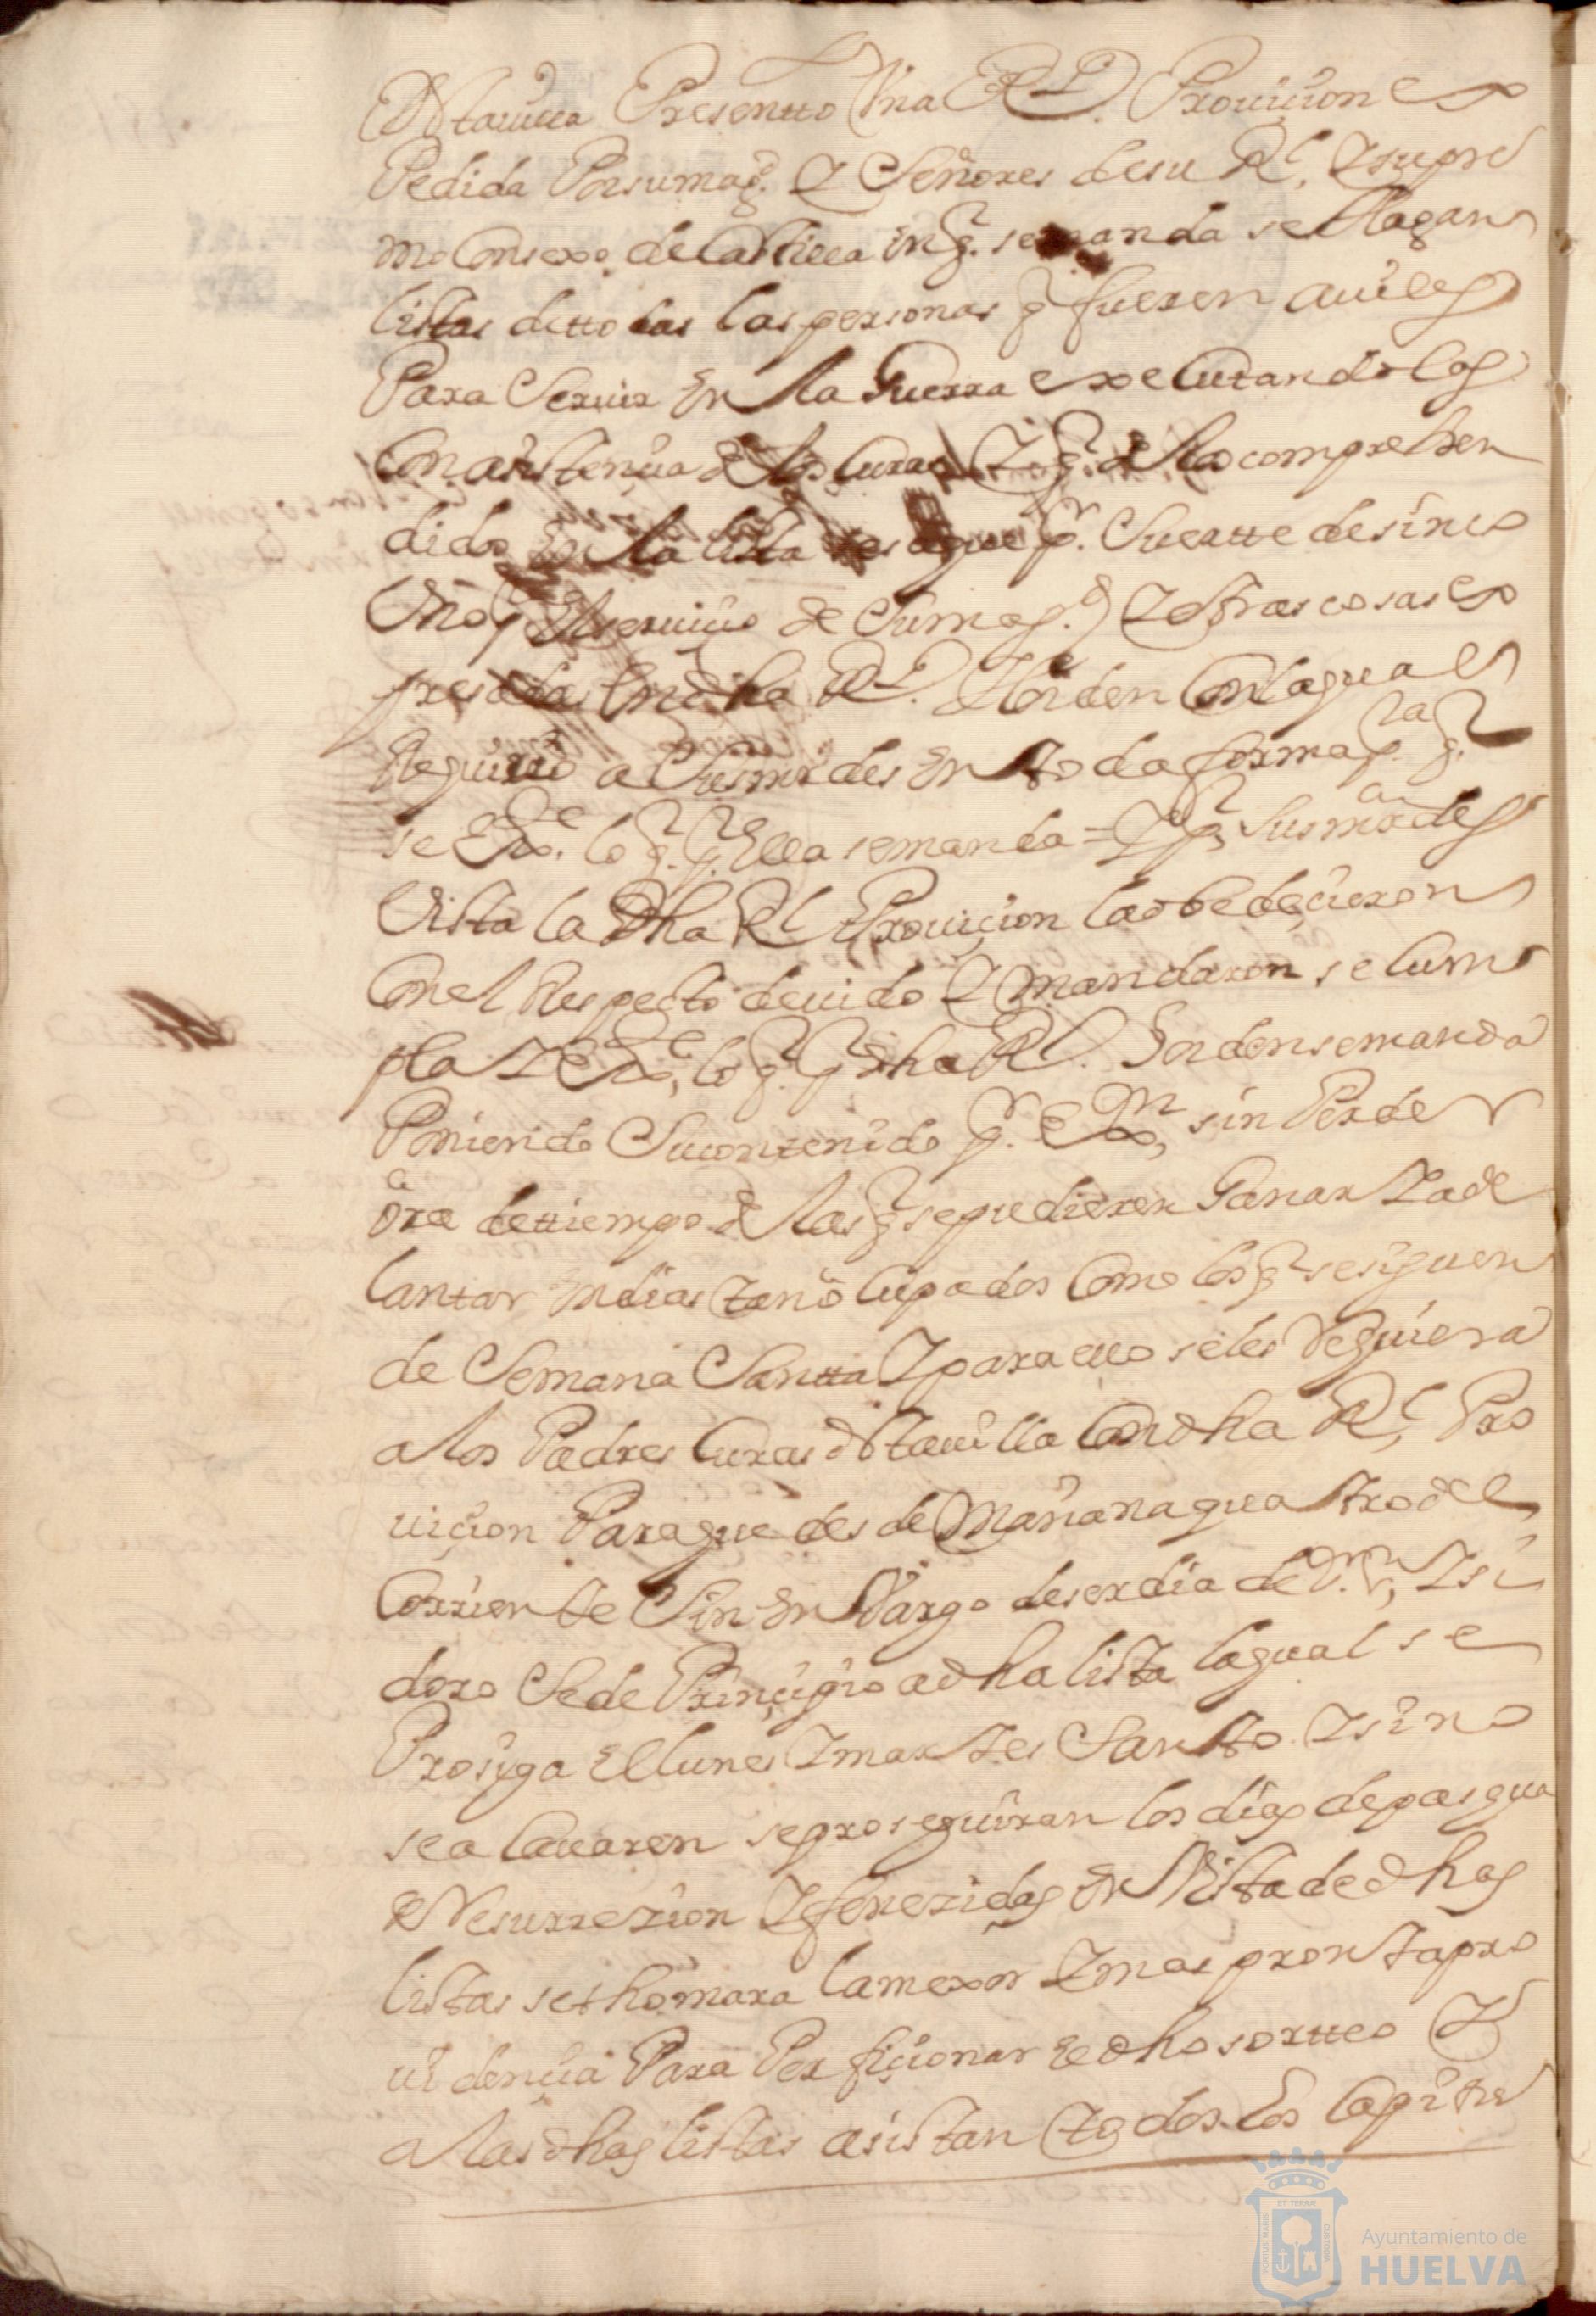 Dsta uilla Presentto Vna Rl. Prouiçion ex
Pedida Por su magd. Y Señores de su Rl. Y supre
mo Consexo de Castilla en q. se manda se Hagan
listas de ttodas las personas q fueren auiles
Para Seruir En la Guerra executandolos
Con asistençia de los Curas Y q. de lo comprehen
dido En la lista se saque pr. Suertte de sinco
Vno pa el seruiçio de Su magd. Y otras cosas ex
presadas En dha Rl. Horden Con la qual
Requirio a Sus mrdes En toda forma pa. q.
se Exe. lo q. pr. Ella se manda = Y pr. Sus mrdes
Vista la Dha Rl Prouiçion la obedeçieron
Con el Respecto deuido Y mandaron se Cum
pla Y Exe. lo q. pr dha Rl. Horden se manda
Poniendo Su contenido pr. Exon, sin Perder
ora de ttiempo de las q se pudieren Ganar Y ade
lantar En dias tan ocupados Como los q se siguen
de Semana Santta Y para ello se les Requiera
a los Padres Curas dsta uilla Con dha Rl. Pro
uiçion Para que desde Mañana quatro del
Corriente Sin Enbargo de ser dia de Sr. Sn, Ysi
doro Se de Prinçipio a dha lista la qual se
Prosiga El lunes Y martes Santo Y si no
se acauaren se proseguiran los dias de pasqua
de Resurrezion Y fenezidas En Vista de dhas
listas se thomara la mexor Y mas pronta pro
uidençia Para Perfiçionar el dho sortteo Y
a las dhas listas asistan todos los Capitu
Ayuntamiento de
HUELVA